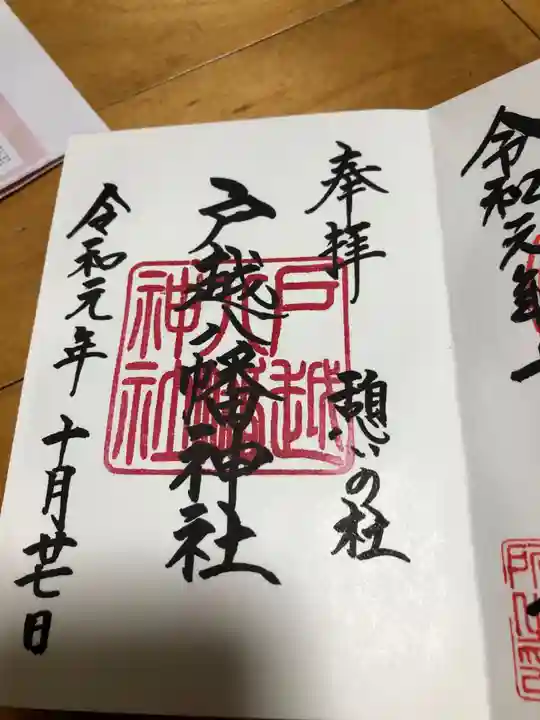 令和元年十
奉拝
憩いの杜
戸越八幡神社
戸越
八幡
神社
令和元年
十月廿七日